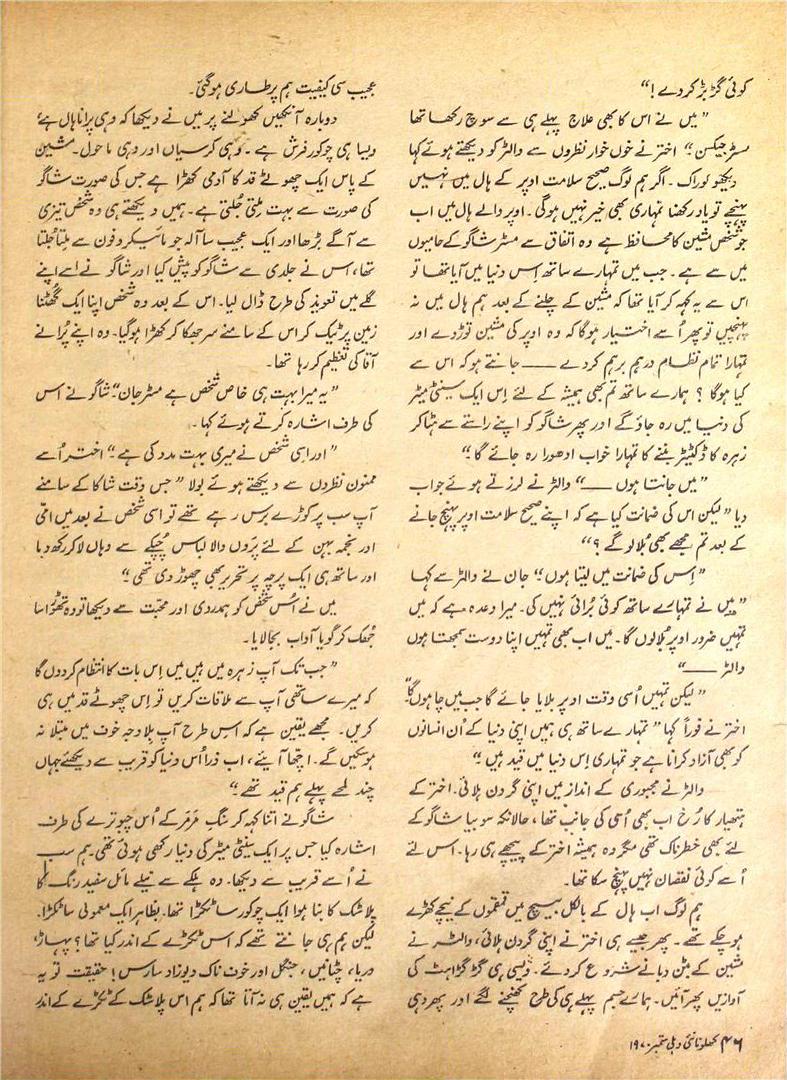 کوئی گڑبڑ کر دے!“
”میں نے اس کا بھی علاج پہلے ہی سے سوچ رکھا تھا
مسٹر جیکسن“ اختر نے خوں خوار نظروں سے والٹر کو دیکھتے ہوئے کہا
دیکھو ٹوراک۔ اگر ہم لوگ صحیح سلامت اوپر کے ہال میں نہیں
پہنچے تو یاد رکھنا تمہاری بھی خیر نہیں ہوگی۔ اوپر والے ہال میں اب
جو شخص مشین کا محافظ ہے وہ اتفاق سے مسٹر شاگو کے حامیوں
میں سے ہے۔ جب میں تمہارے ساتھ اِس دنیا میں آیا تھا تو
اس سے یہ کہہ کر آیا تھا کہ مشین کے چلنے کے بعد ہم ہال میں نہ
پہنچیں تو پھر اُسے اختیار ہوگا کہ وہ اوپر کی مشین توڑ دے اور
تمہارا تمام نظام درہم برہم کر دے —— جانتے ہو کہ اس سے
کیا ہوگا؟ ہمارے ساتھ تم بھی ہمیشہ کے لئے اِس ایک سینٹی میٹر
کی دنیا میں رہ جاؤ گے اور پھر شاگو کو اپنے راستے سے ہٹا کر
زہرہ کا ڈکٹیٹر بننے کا تمہارا خواب ادھورا رہ جائے گا۔“
”میں جانتا ہوں ——“ والٹر نے لرزتے ہوئے جواب
دیا ”لیکن اس کی ضمانت کیا ہے کہ اپنے صحیح سلامت اوپر پہنچ جانے
کے بعد تم مجھے بھی بُلا لو گے؟“
”اِس کی ضمانت میں لیتا ہوں“ جان نے والٹر سے کہا
”میں نے تمہارے ساتھ کوئی بُرائی نہیں کی۔ میرا وعدہ ہے کہ میں
تمہیں ضرور اوپر بُلا لوں گا۔ میں اب بھی تمہیں اپنا دوست سمجھتا ہوں
والٹر ——“
”لیکن تمہیں اُسی وقت اوپر بلایا جائے گا جب میں چاہوں گا“
اختر نے فوراً کہا ”تمہارے ساتھ ہی ہمیں اپنی دنیا کے اُن انسانوں
کو بھی آزاد کرانا ہے جو تمہاری اِس دنیا میں قید ہیں“
والٹر نے مجبوری کے انداز میں اپنی گردن ہلائی۔ اختر کے
ہتھیار کا رُخ اب بھی اُسی کی جانب تھا، حالانکہ سوبیا شاگو کے
لئے بھی خطرناک تھی مگر وہ ہمیشہ اختر کے پیچھے ہی رہا۔ اس لئے
اُسے کوئی نقصان نہیں پہنچ سکا تھا۔
ہم لوگ اب ہال کے بالکل بیچ میں قمقموں کے نیچے کھڑے
ہو چکے تھے۔ پھر جیسے ہی اختر نے اپنی گردن ہلائی، والٹر نے
مشین کے بٹن دبانے شروع کر دئے۔ ویسی ہی گڑگڑاہٹ کی
آوازیں پھر آئیں۔ ہمارے جسم پہلے ہی کی طرح کھنچنے لگے اور پھر وہی
عجیب سی کیفیت ہم پر طاری ہوگئی۔
دوبارہ آنکھیں کھولنے پر میں نے دیکھا کہ وہی پرانا ہال ہے،
ویسا ہی چوکور فرش ہے۔ وہی کرسیاں اور وہی ماحول۔ مشین
کے پاس ایک چھوٹے قد کا آدمی کھڑا ہے جس کی صورت شاگو
کی صورت سے بہت ملتی جُلتی ہے۔ ہمیں دیکھتے ہی وہ شخص تیزی
سے آگے بڑھا اور ایک عجیب سا آلہ جو مائیکروفون سے ملتا جُلتا
تھا، اس نے جلدی سے شاگو کو پیش کیا اور شاگو نے اسے اپنے
گلے میں تعویذ کی طرح ڈال لیا۔ اس کے بعد وہ شخص اپنا ایک گھٹنا
زمین پر ٹیک کر اس کے سامنے سر جھکا کر کھڑا ہوگیا۔ وہ اپنے پُرانے
آقا کی تعظیم کر رہا تھا۔
”یہ میرا بہت ہی خاص شخص ہے مسٹر جان“ شاگو نے اس
کی طرف اشارہ کرتے ہوئے کہا۔
”اور اسی شخص نے میری بہت مدد کی ہے۔“ اختر اُسے
ممنون نظروں سے دیکھتے ہوئے بولا ”جس وقت شاکا کے سامنے
آپ سب پر کوڑے برس رہے تھے تو اسی شخص نے بعد میں امّی
اور نجمہ بہن کے لئے پَروں والا لباس چُپکے سے وہاں لا کر رکھ دیا
اور ساتھ ہی ایک پرچہ پر تحریر بھی چھوڑ دی تھی“
میں نے اُس شخص کو ہمدردی اور محبّت سے دیکھا تو وہ تھوڑا سا
جُھک کر گویا آداب بجا لایا۔
”جب تک آپ زہرہ میں ہیں میں اِس بات کا انتظام کر دوں گا
کہ میرے ساتھی آپ سے ملاقات کریں تو اِس چھوٹے قد میں ہی
کریں۔ مجھے یقین ہے کہ اس طرح آپ بلا وجہ خوف میں مبتلا نہ
ہو سکیں گے۔ اچھا آیئے، اب ذرا اُس دنیا کو قریب سے دیکھئے جہاں
چند لمحے پہلے ہم قید تھے“
شاگو نے اتنا کہہ کر سنگ مرمر کے اُس چبوترے کی طرف
اشارہ کیا جس پر ایک سینٹی میٹر کی دنیا رکھی ہوئی تھی۔ ہم سب
نے اُسے قریب سے دیکھا۔ وہ ہلکے سے نیلے مائل سفید رنگ کا
پلاسٹک کا بنا ہوا ایک چوکور سا ٹکڑا تھا۔ بظاہر ایک معمولی سا ٹکڑا۔
لیکن ہم ہی جانتے تھے کہ اس ٹکڑے کے اندر کیا تھا؟ پہاڑ،
دریا، چٹانیں، جنگل اور خوف ناک دیوزاد سارس! حقیقت تو یہ
ہے کہ ہمیں یقین ہی نہ آتا تھا کہ ہم اس پلاسٹک کے ٹکڑے کے اندر
۴۶ کھلونا نئی دہلی ستمبر ۱۹۷۰